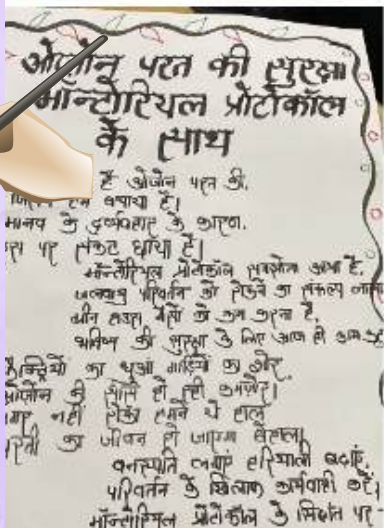 ओज़ोन परत की सुरक्षा
मॉन्टोरियल प्रोटोकॉल
के साथ
है ओजोन परत की,
हमने बचाया है।
मानव के दुर्व्यवहार के कारण,
पर संकट छाया है।
मॉन्टोरियल प्रोटोकॉल समझौता आया है,
जलवायु परिवर्तन को रोकने का संकल्प लाया
ग्रीन हाउस गैसों को कम करना है,
भविष्य की सुरक्षा के लिए आज ही काम
फैक्ट्रियों का धुआं गाड़ियों का शोर,
ओजोन की साँसें हो रही कमज़ोर।
अगर नहीं रोका हमने ये हाल,
धरती का जीवन हो जाएगा बेहाल।
वनस्पति लगाएं हरियाली बढ़ाएं,
परिवर्तन के खिलाफ कार्यवाही करें।
मॉन्टोरियल प्रोटोकॉल के सिद्धांत पर